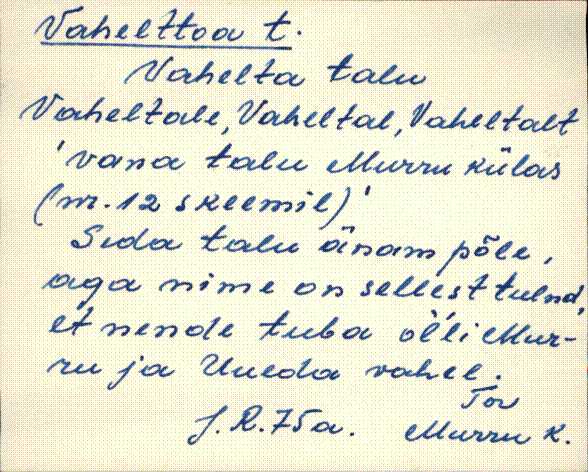 Vahelttoa t.
Vahelta talu
Vaheltale, Vaheltal, Vaheltalt
'vana talu Murru külas
(nr. 12 skeemil)'
Seda talu änam põle,
aga nime on sellest tulnd,
et nende tuba olli Mur-
ru ja Uueda vahel.
J. R. 75a. Tor
Murru k.